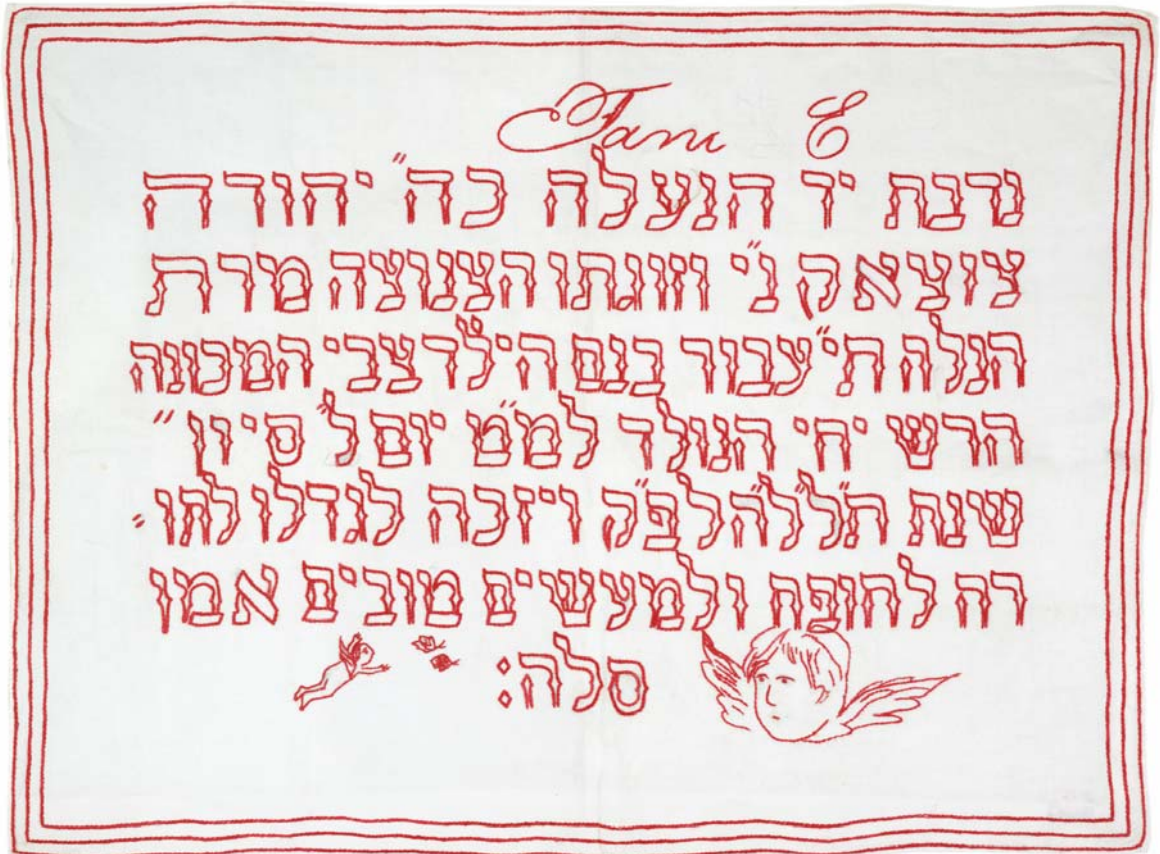 Fani E
נדבת יד הנעלה כה״ יהודה
ציוצאק ני״ וזוגתו הצנוצה מרת
הנלה תי״ עבור בנם הילד צבי המכונה
הרש יחי הנולד למ״מ יום ל״ סיון ״
שנת ת״ל״ל״ה לפ״ק ויזכה לגדלו לתו ״
רה לחופה ולמעשים טובים אמן
סלה: